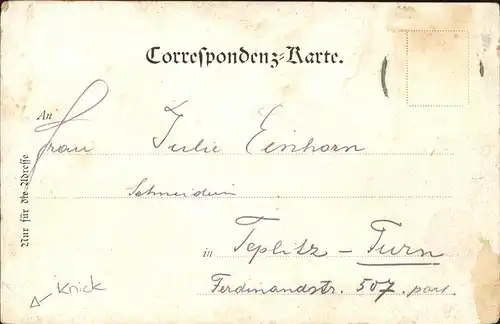 Correspondenz-Karte.
An
Frau Julie Einhorn
Schneiderin
in Teplitz - Turn
Ferdinandstr. 507. part
Nur für die Adresse
Knick